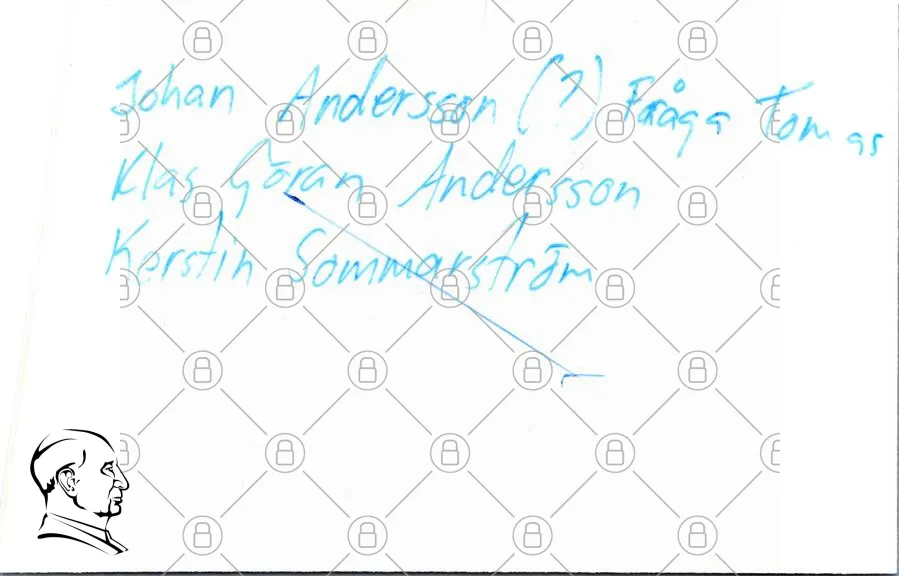 Johan Andersson (?) Fråga Tomas
Klas Göran Andersson
Kerstin Sommarström